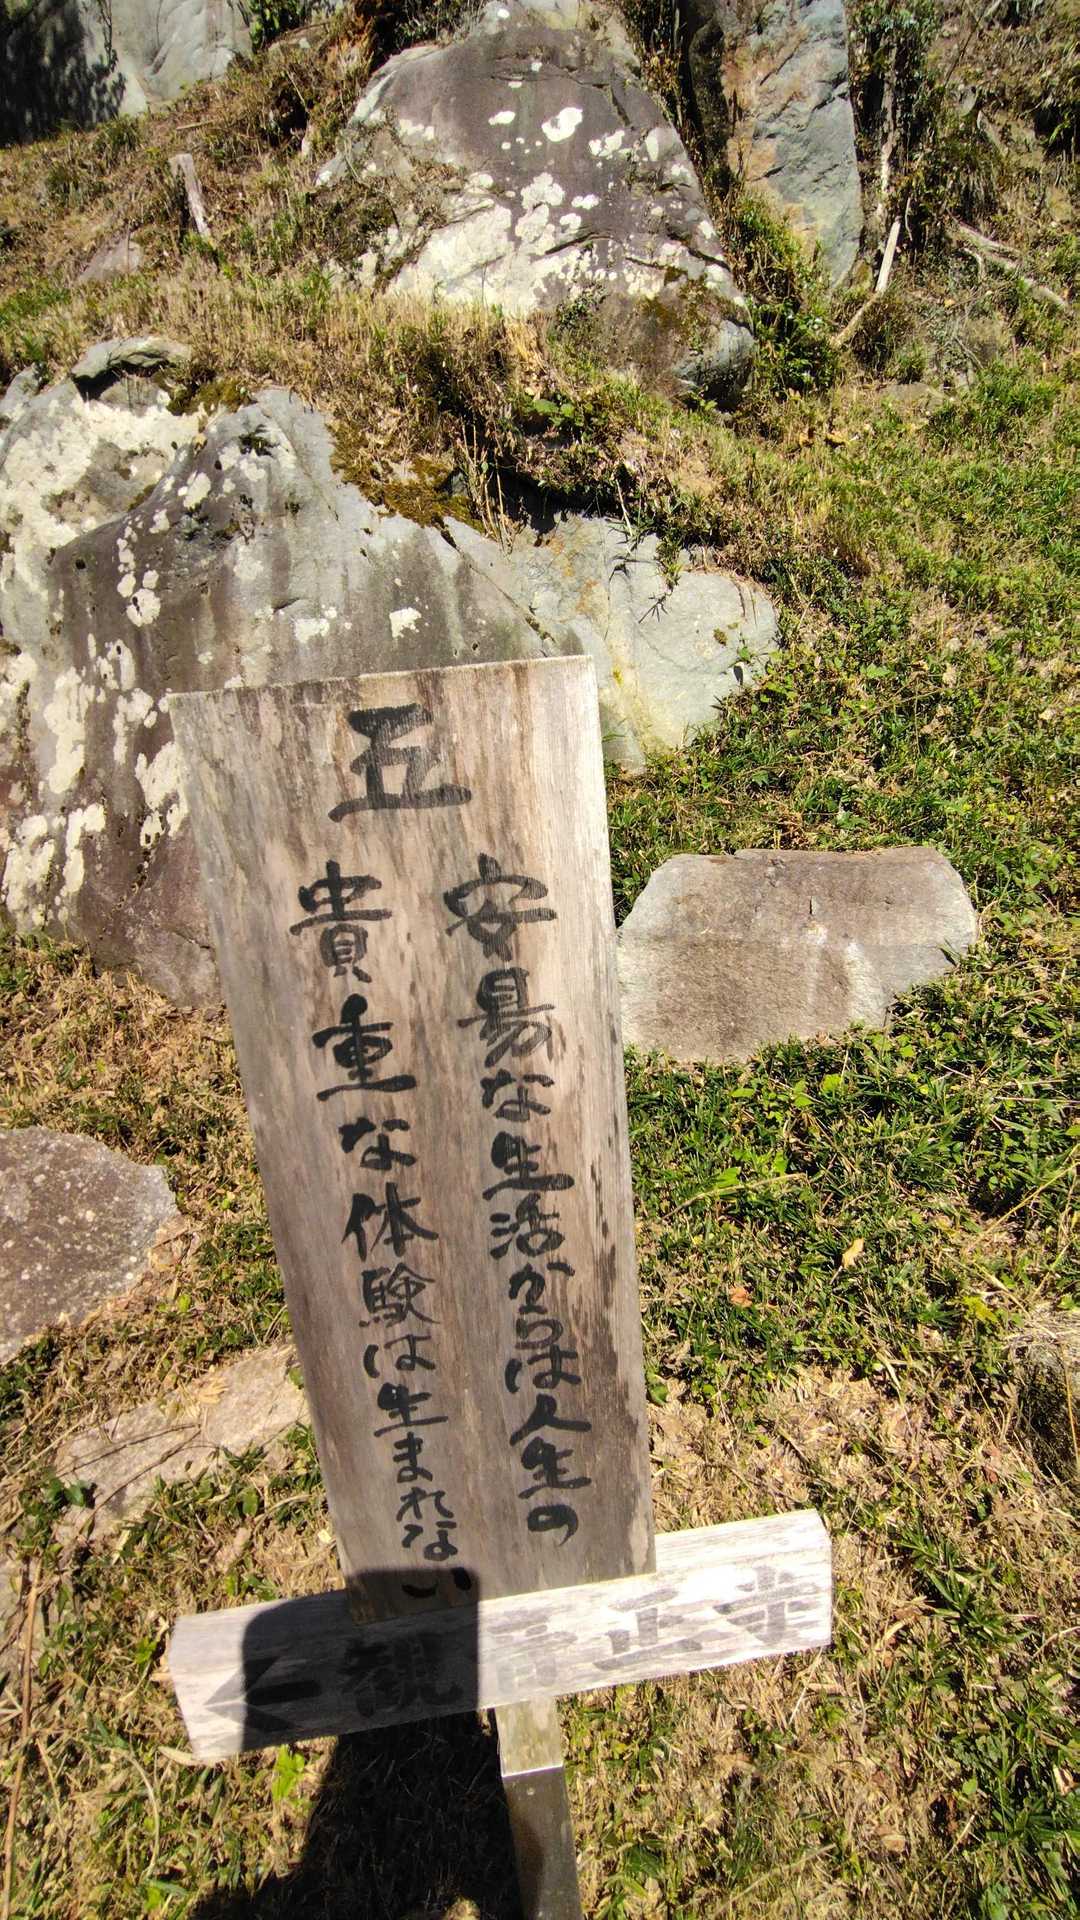 五
安易な生活からは人生の
貴重な体験は生まれない
観音正寺